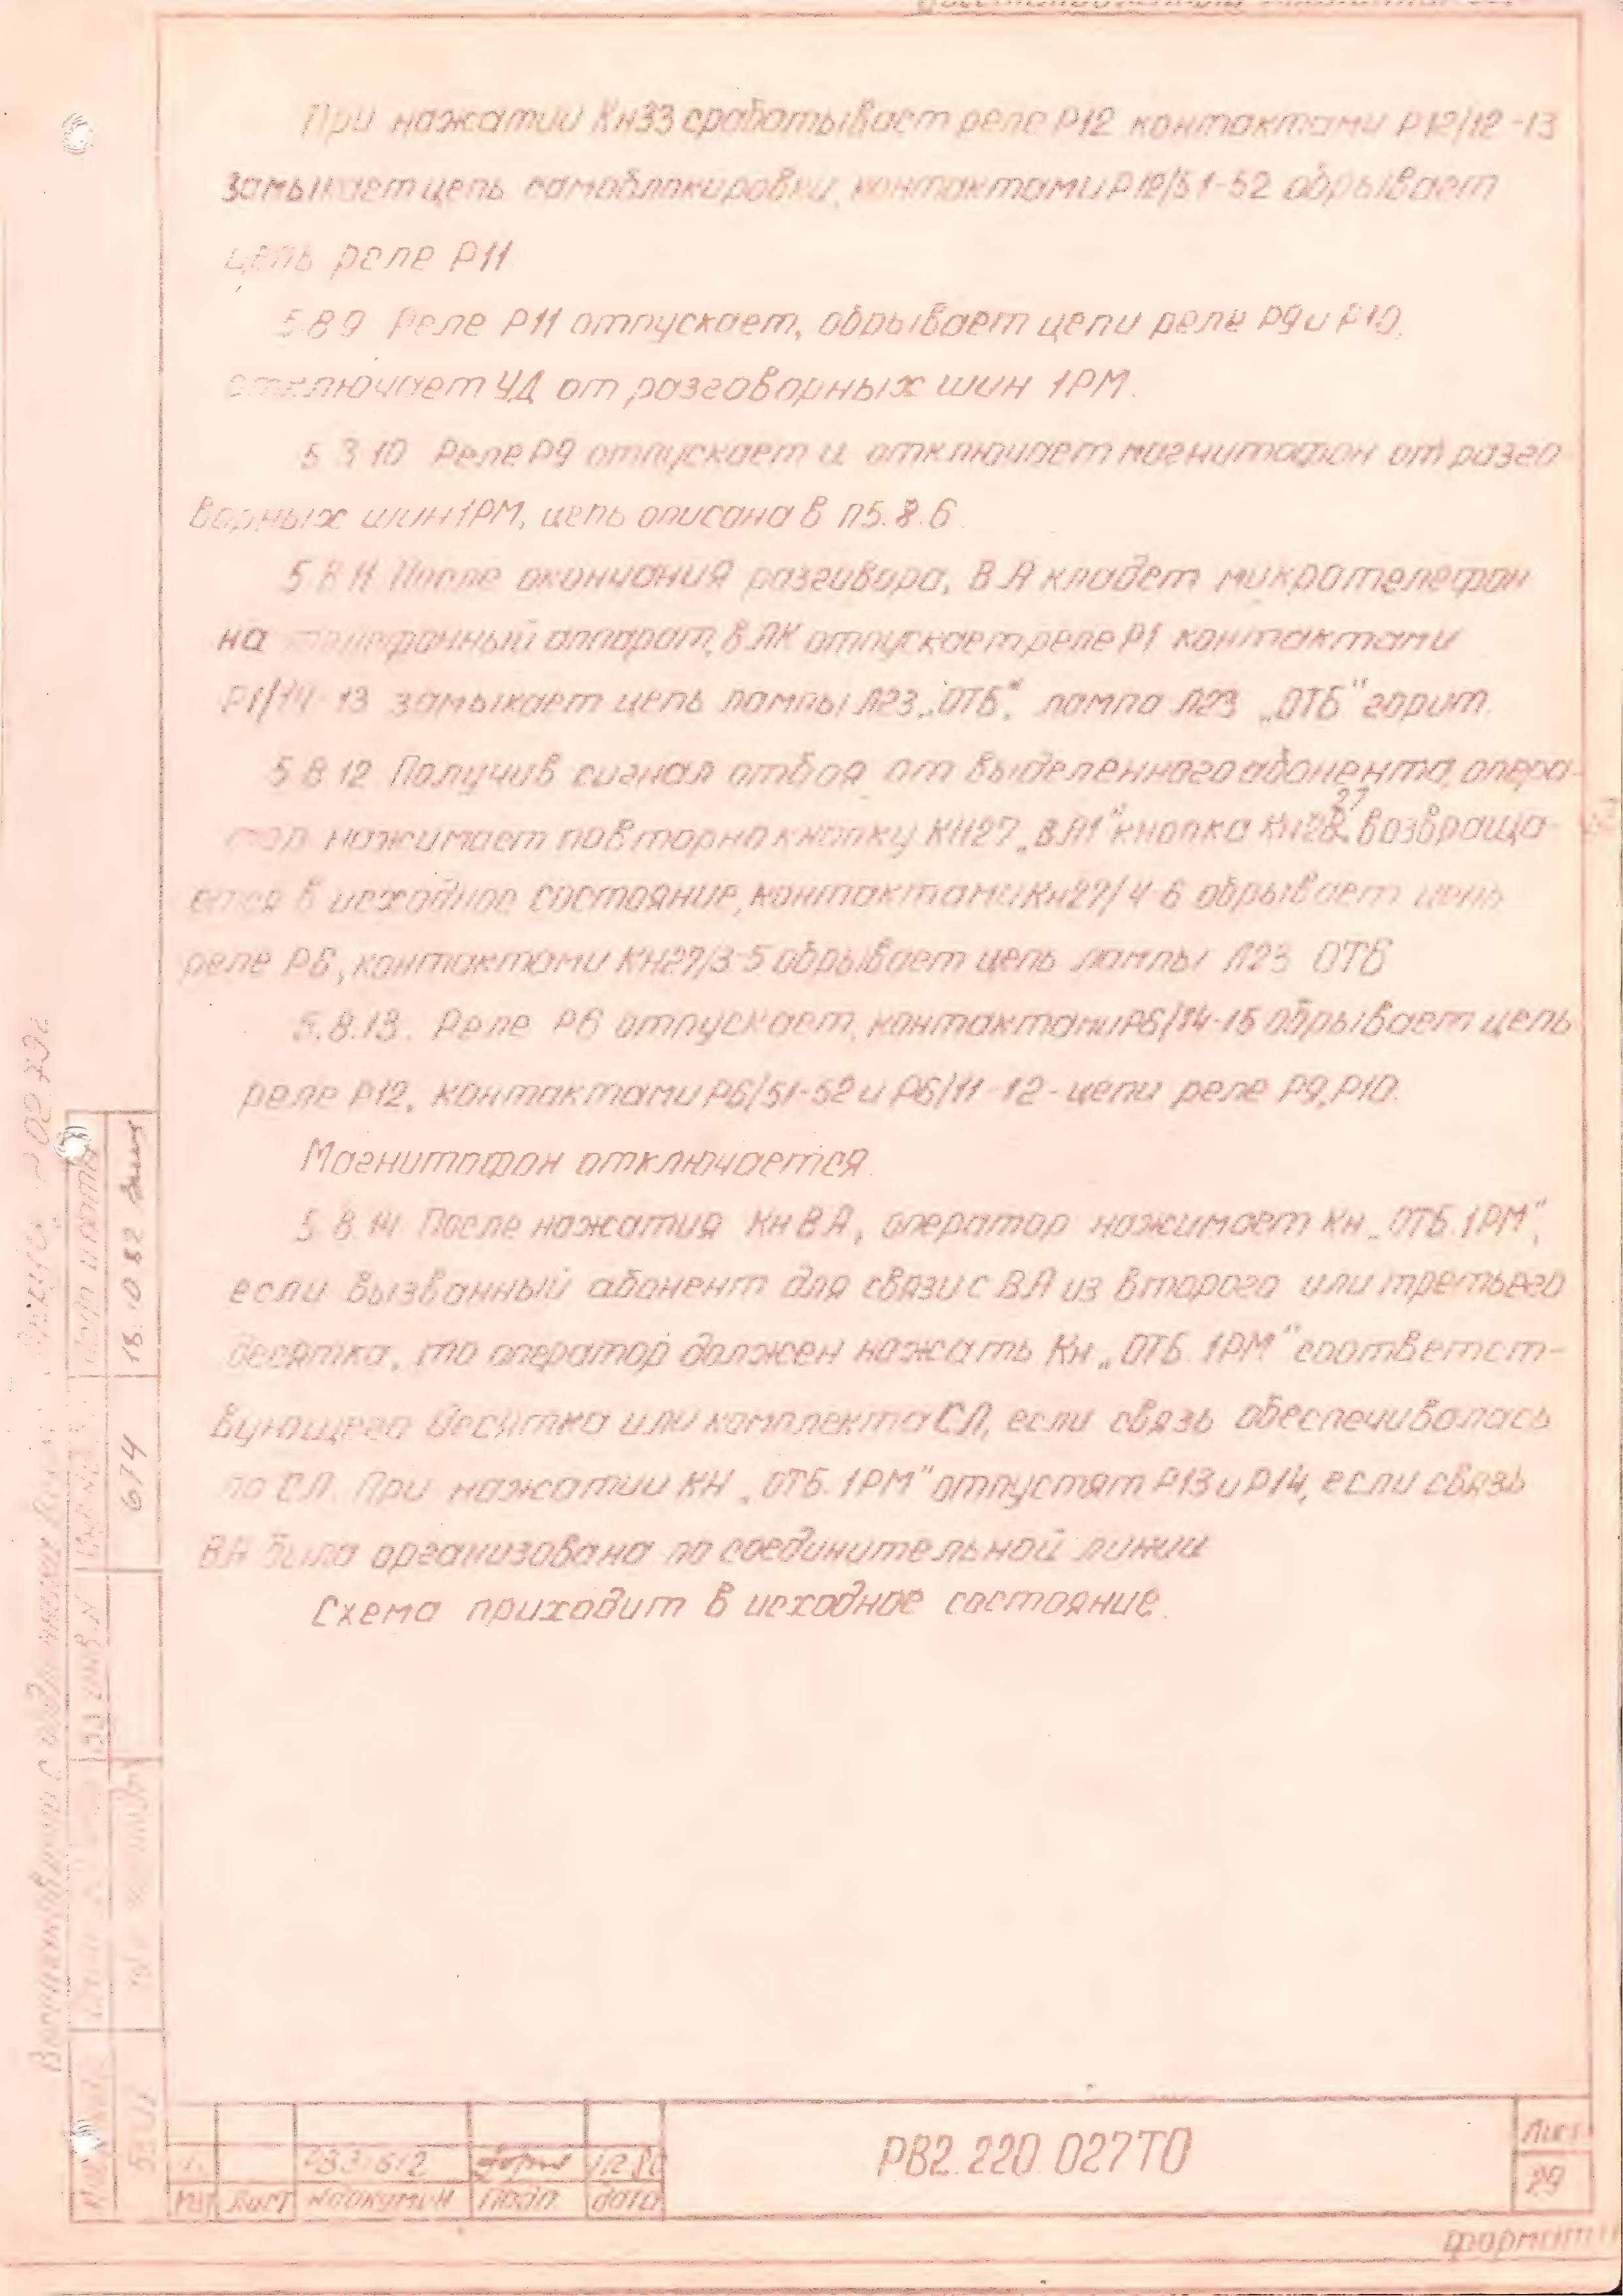 При нажатии Кн33 срабатывает реле Р12 контактами Р12/12-13
замыкает цепь самоблокировки, контактами Р12/51-52 обрывает
цепь реле Р11
5.8.9 Реле Р11 отпускает, обрывает цепи реле Р9 и Р10,
отключает УД от разговорных шин 1РМ.
5.8.10 Реле Р9 отпускает и отключает магнитофон от разго
ворных шин 1РМ, цепь описана в п5.8.6
5.8.11 После окончания разговора, ВА кладет микротелефон
на телефонный аппарат, в ЛК отпускает реле Р1 контактами
Р1/14-13 замыкает цепь лампы Л23 „ОТБ“, лампа Л23 „ОТБ“ горит.
5.8.12 Получив сигнал отбоя от выделенного абонента, опера-
тор нажимает повторно кнопку КН27 „ВА1“ кнопка Кн27 возвраща-
ется в исходное состояние, контактами Кн27/4-6 обрывает цепь
реле Р6, контактами КН27/3-5 обрывает цепь лампы Л23 ОТБ
5.8.13. Реле Р6 отпускает, контактами Р6/14-15 обрывает цепь
реле Р12, контактами Р6/51-52 и Р6/11-12 - цепи реле Р9, Р10.
Магнитофон отключается.
5.8.14 После нажатия Кн ВА, оператор нажимает Кн „ОТБ.1РМ“,
если вызванный абонент для связи с ВА из второго или третьего
десятка, то оператор должен нажать Кн „ОТБ.1РМ“ соответст-
вующего десятка или комплекта СЛ, если связь обеспечивалась
по СЛ. При нажатии КН „ОТБ.1РМ“ отпустят Р13 и Р14, если связь
ВА была организована по соединительной линии
Схема приходит в исходное состояние.
674
15.10.82
Лист
№ докумен
Подп
дата
РВ2.220.027ТО
Лист
29
формат 11